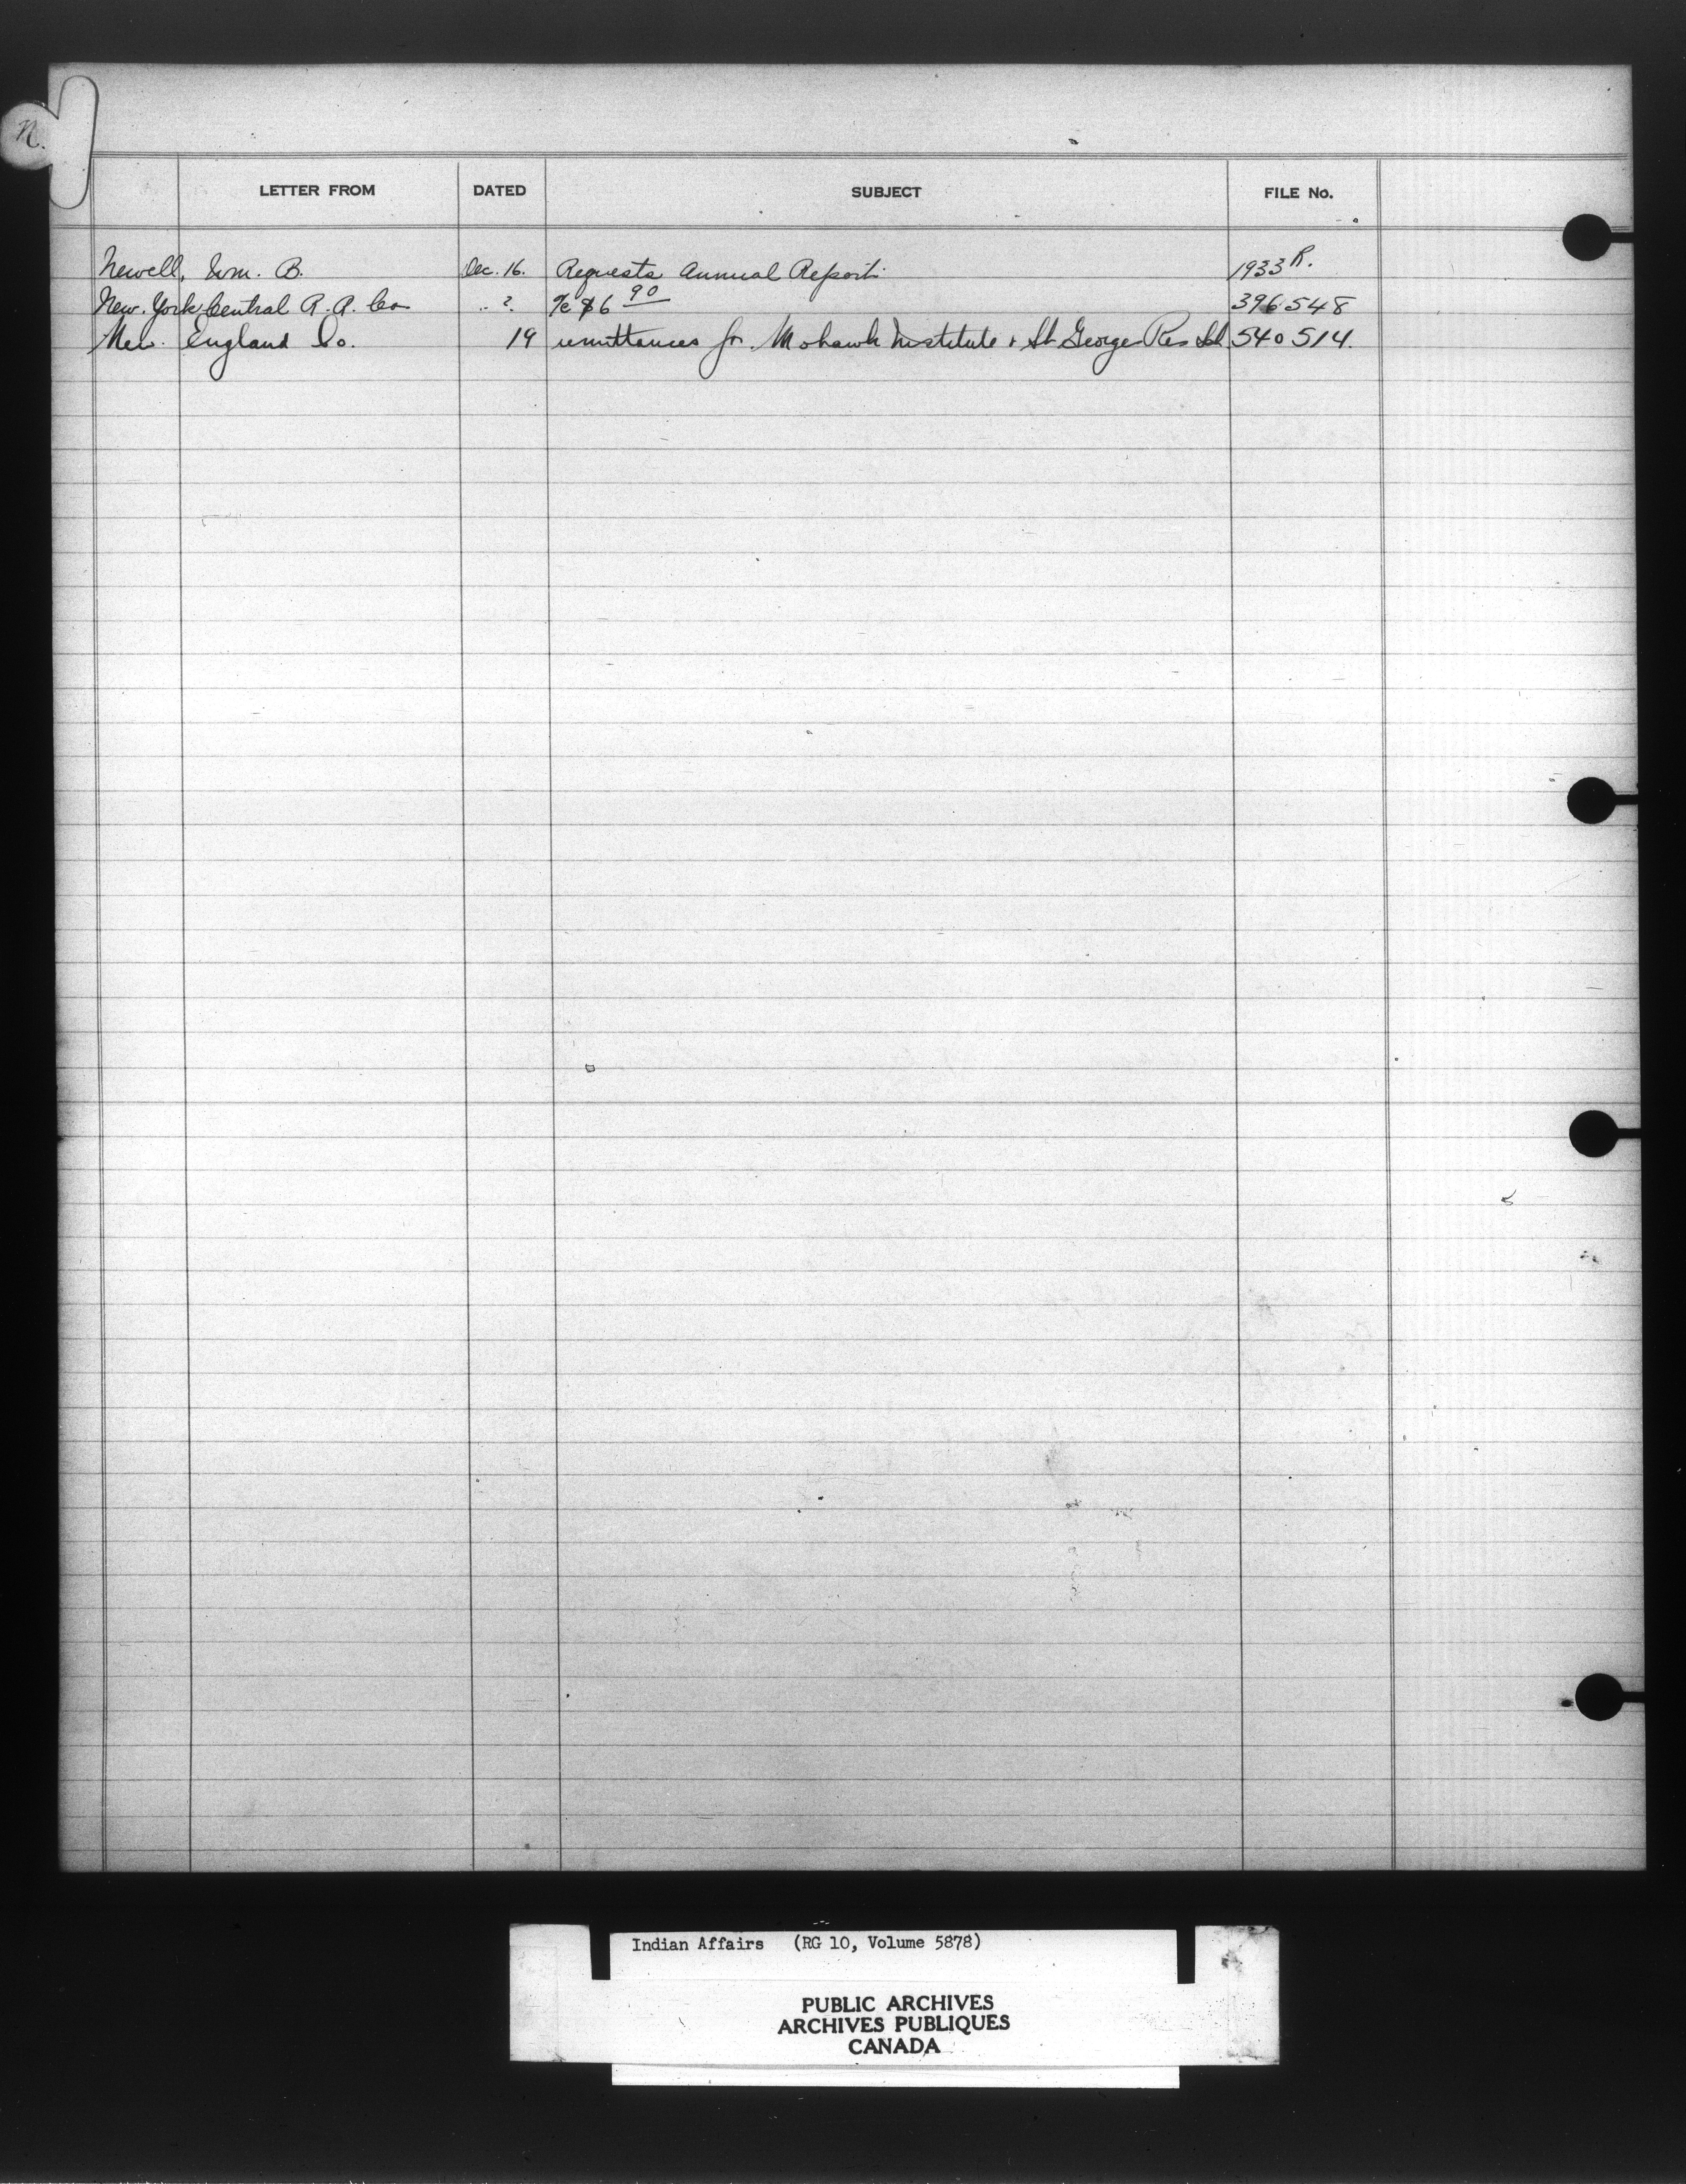 N.
LETTER FROM DATED SUBJECT FILE No.
Newell, Wm. B. Dec. 16. Requests Annual Report. 1933 R.
New York Central R.R. Co " ? %c $6 90 396548
New England Co. 19 remittances for Mohawk Institute & St George Res Sch. 540514.
Indian Affairs (RG 10, Volume 5878)
PUBLIC ARCHIVES
ARCHIVES PUBLIQUES
CANADA